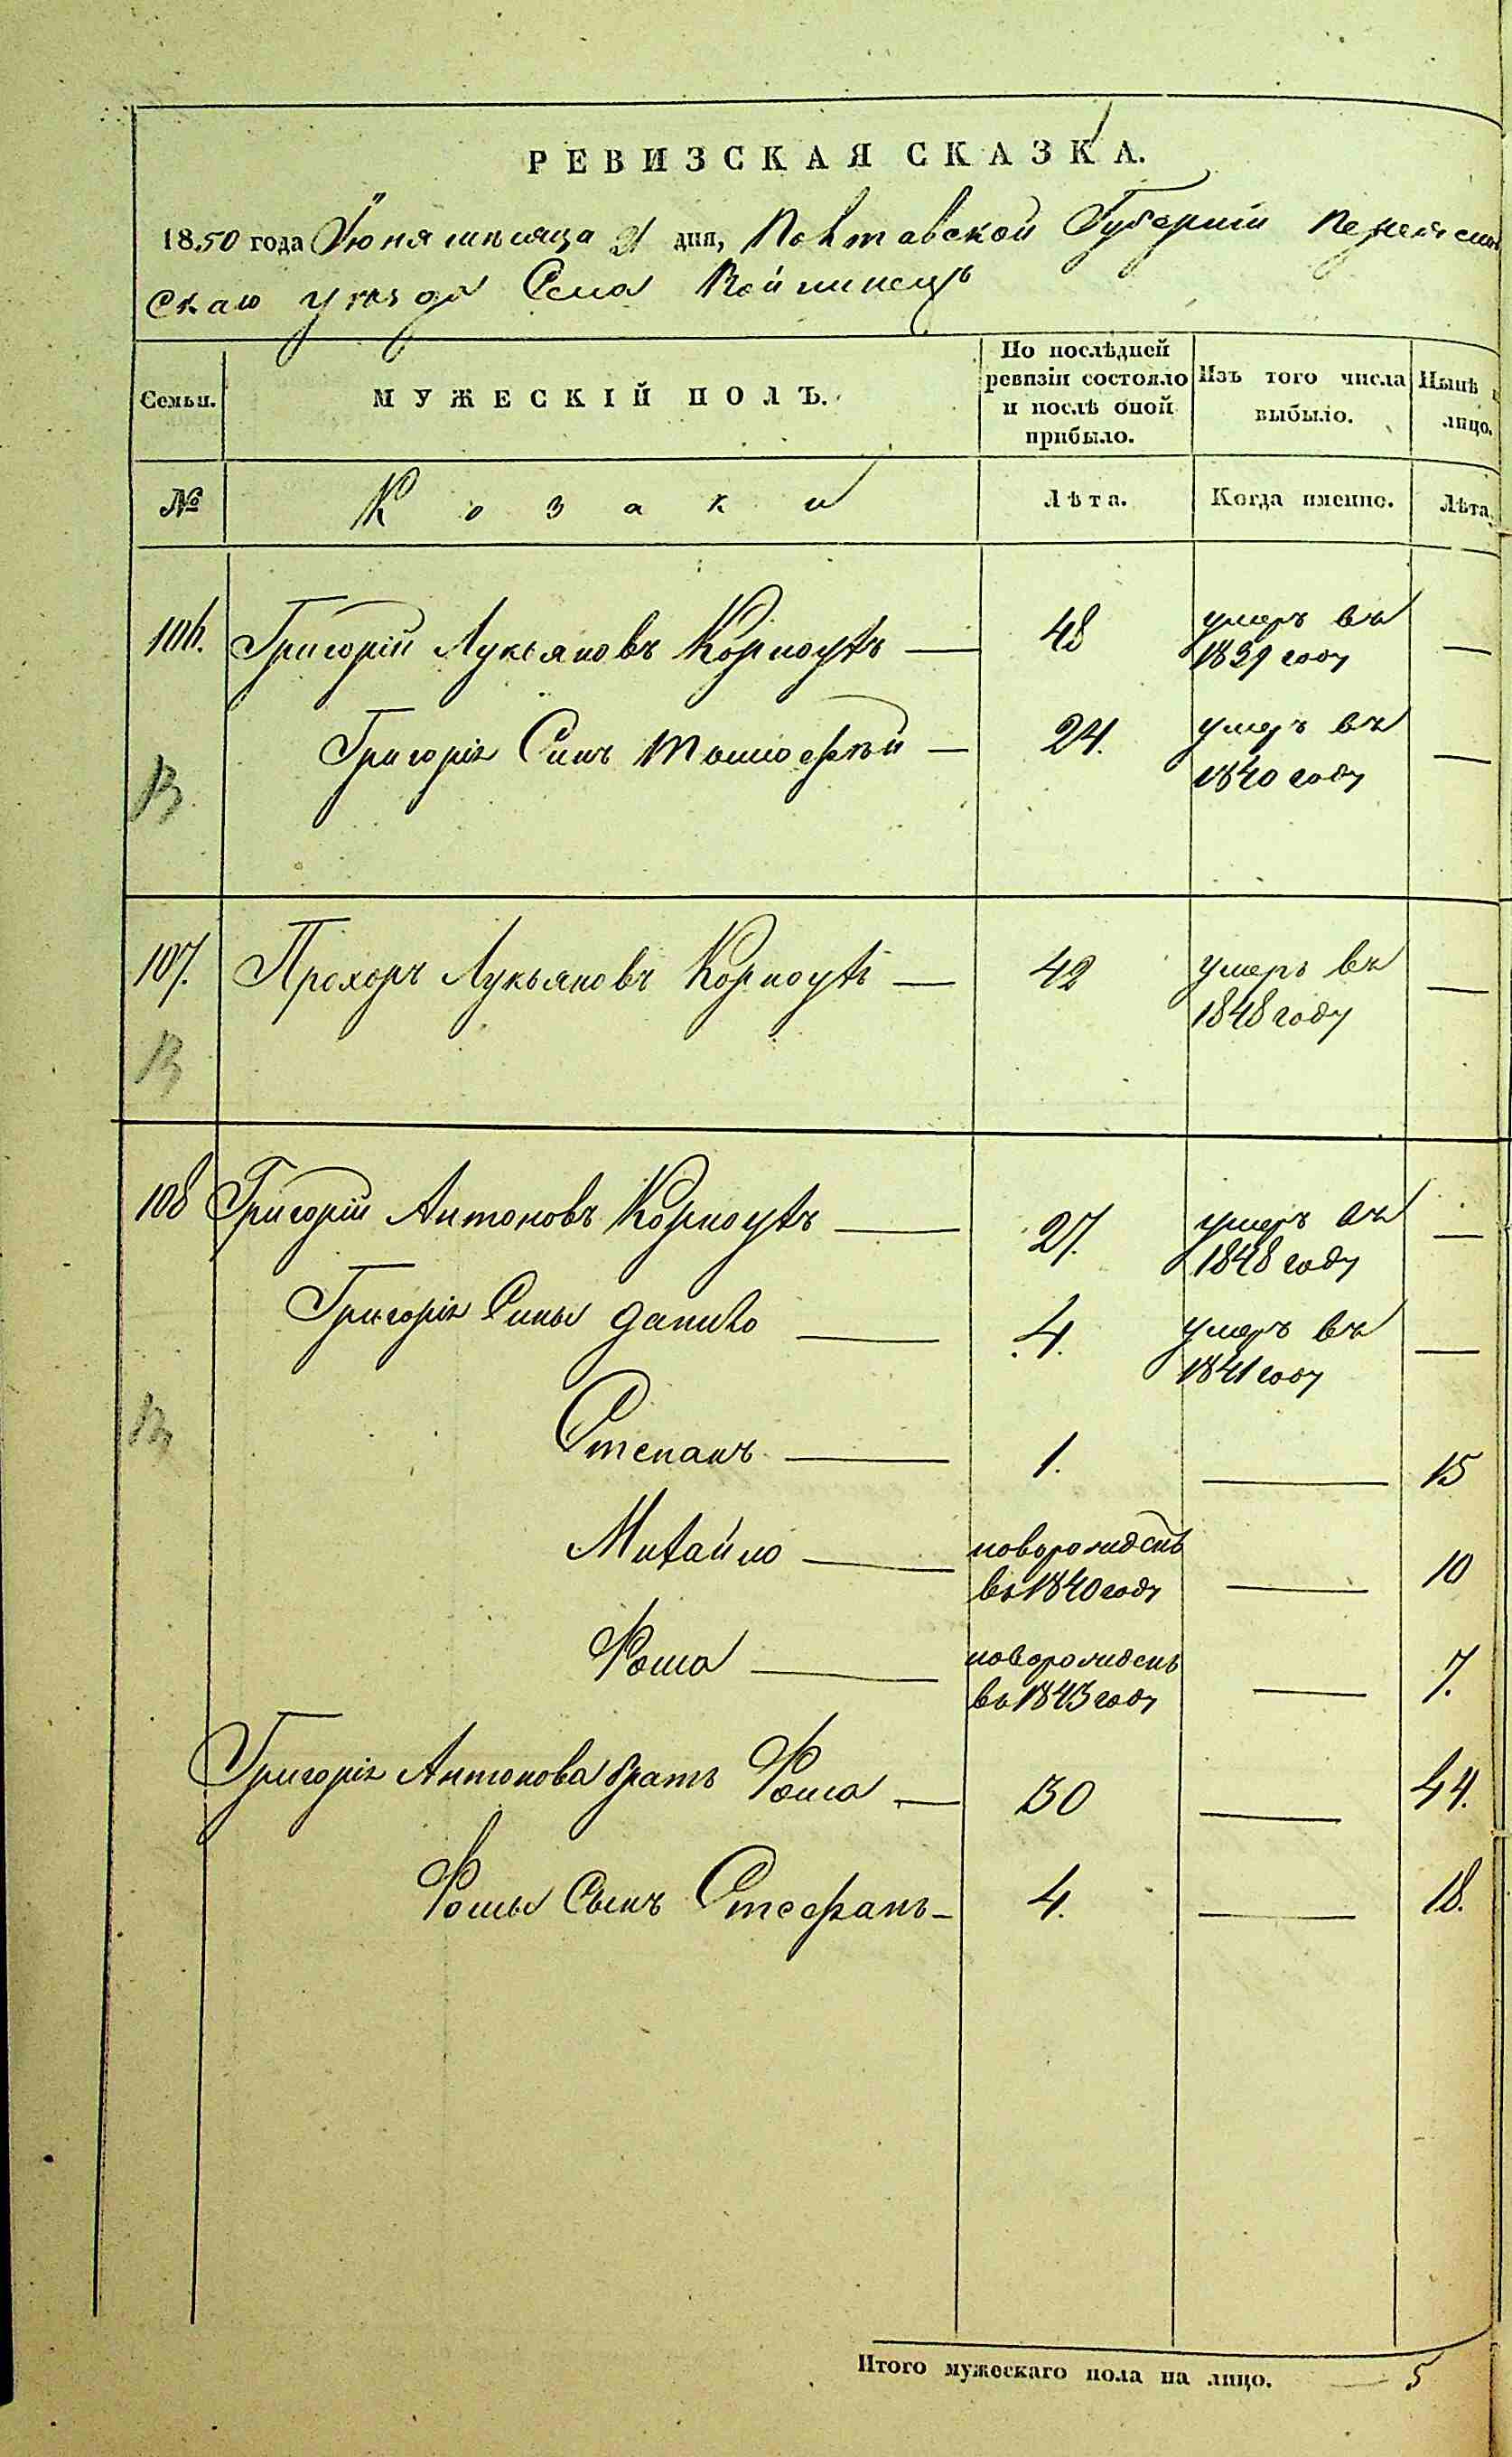 РЕВИЗСКАЯ СКАЗКА.
1850 года Июня мѣсяца 21 дня, Полтавской Губерніи
скаго уѣзда Села Войтинецъ
Семьи.
МУЖЕСКІЙ ПОЛЪ.
По послѣдней
ревизіи состояло
и послѣ оной
прибыло.
Изъ того числа
выбыло.
Нынѣ
лицо.
№
Козаки
Лѣта.
Когда именно.
Лѣта.
106. Григорій Лукьяновъ Корноухъ — 48 умеръ въ —
1839 году
Григорія Синъ Тимофѣй — 24. умеръ въ —
1840 году
107. Прохоръ Лукьяновъ Корноухъ — 42 умеръ въ —
1848 году
108 Григорій Антоновъ Корноухъ — 27. умеръ въ —
1848 году
Григорія Сины Данило — 4. умеръ въ —
1841 году
Степанъ — 1. — 15
Михайло — новорожденъ — 10
въ 1840 году
Фома — новорожденъ — 7.
въ 1843 году
Григорія Антонова братъ Фома — 30 — 44.
Фомы Сынъ Стефанъ — 4. — 18.
Итого мужескаго пола на лицо. — 5